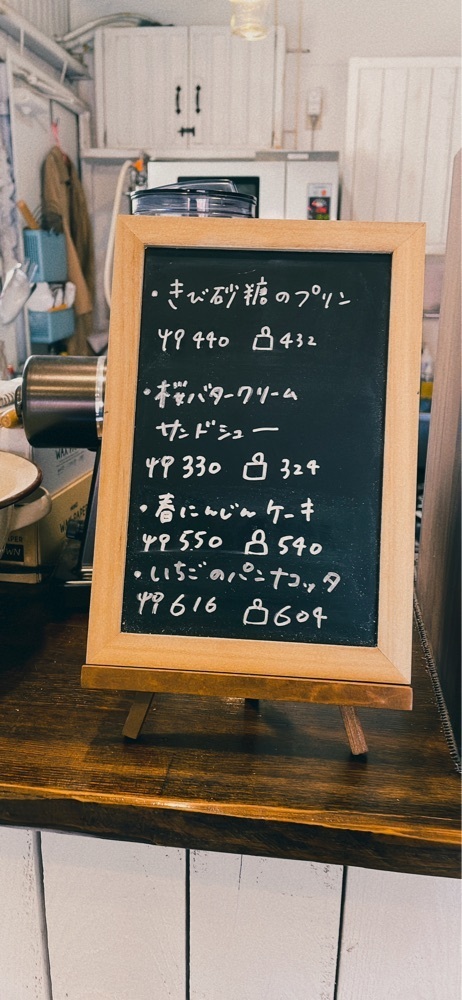 ・きび砂糖のプリン
440 432
・桜バタークリーム
サンドシュー
330 324
・春にんじんケーキ
550 540
・いちごのパンナコッタ
616 604